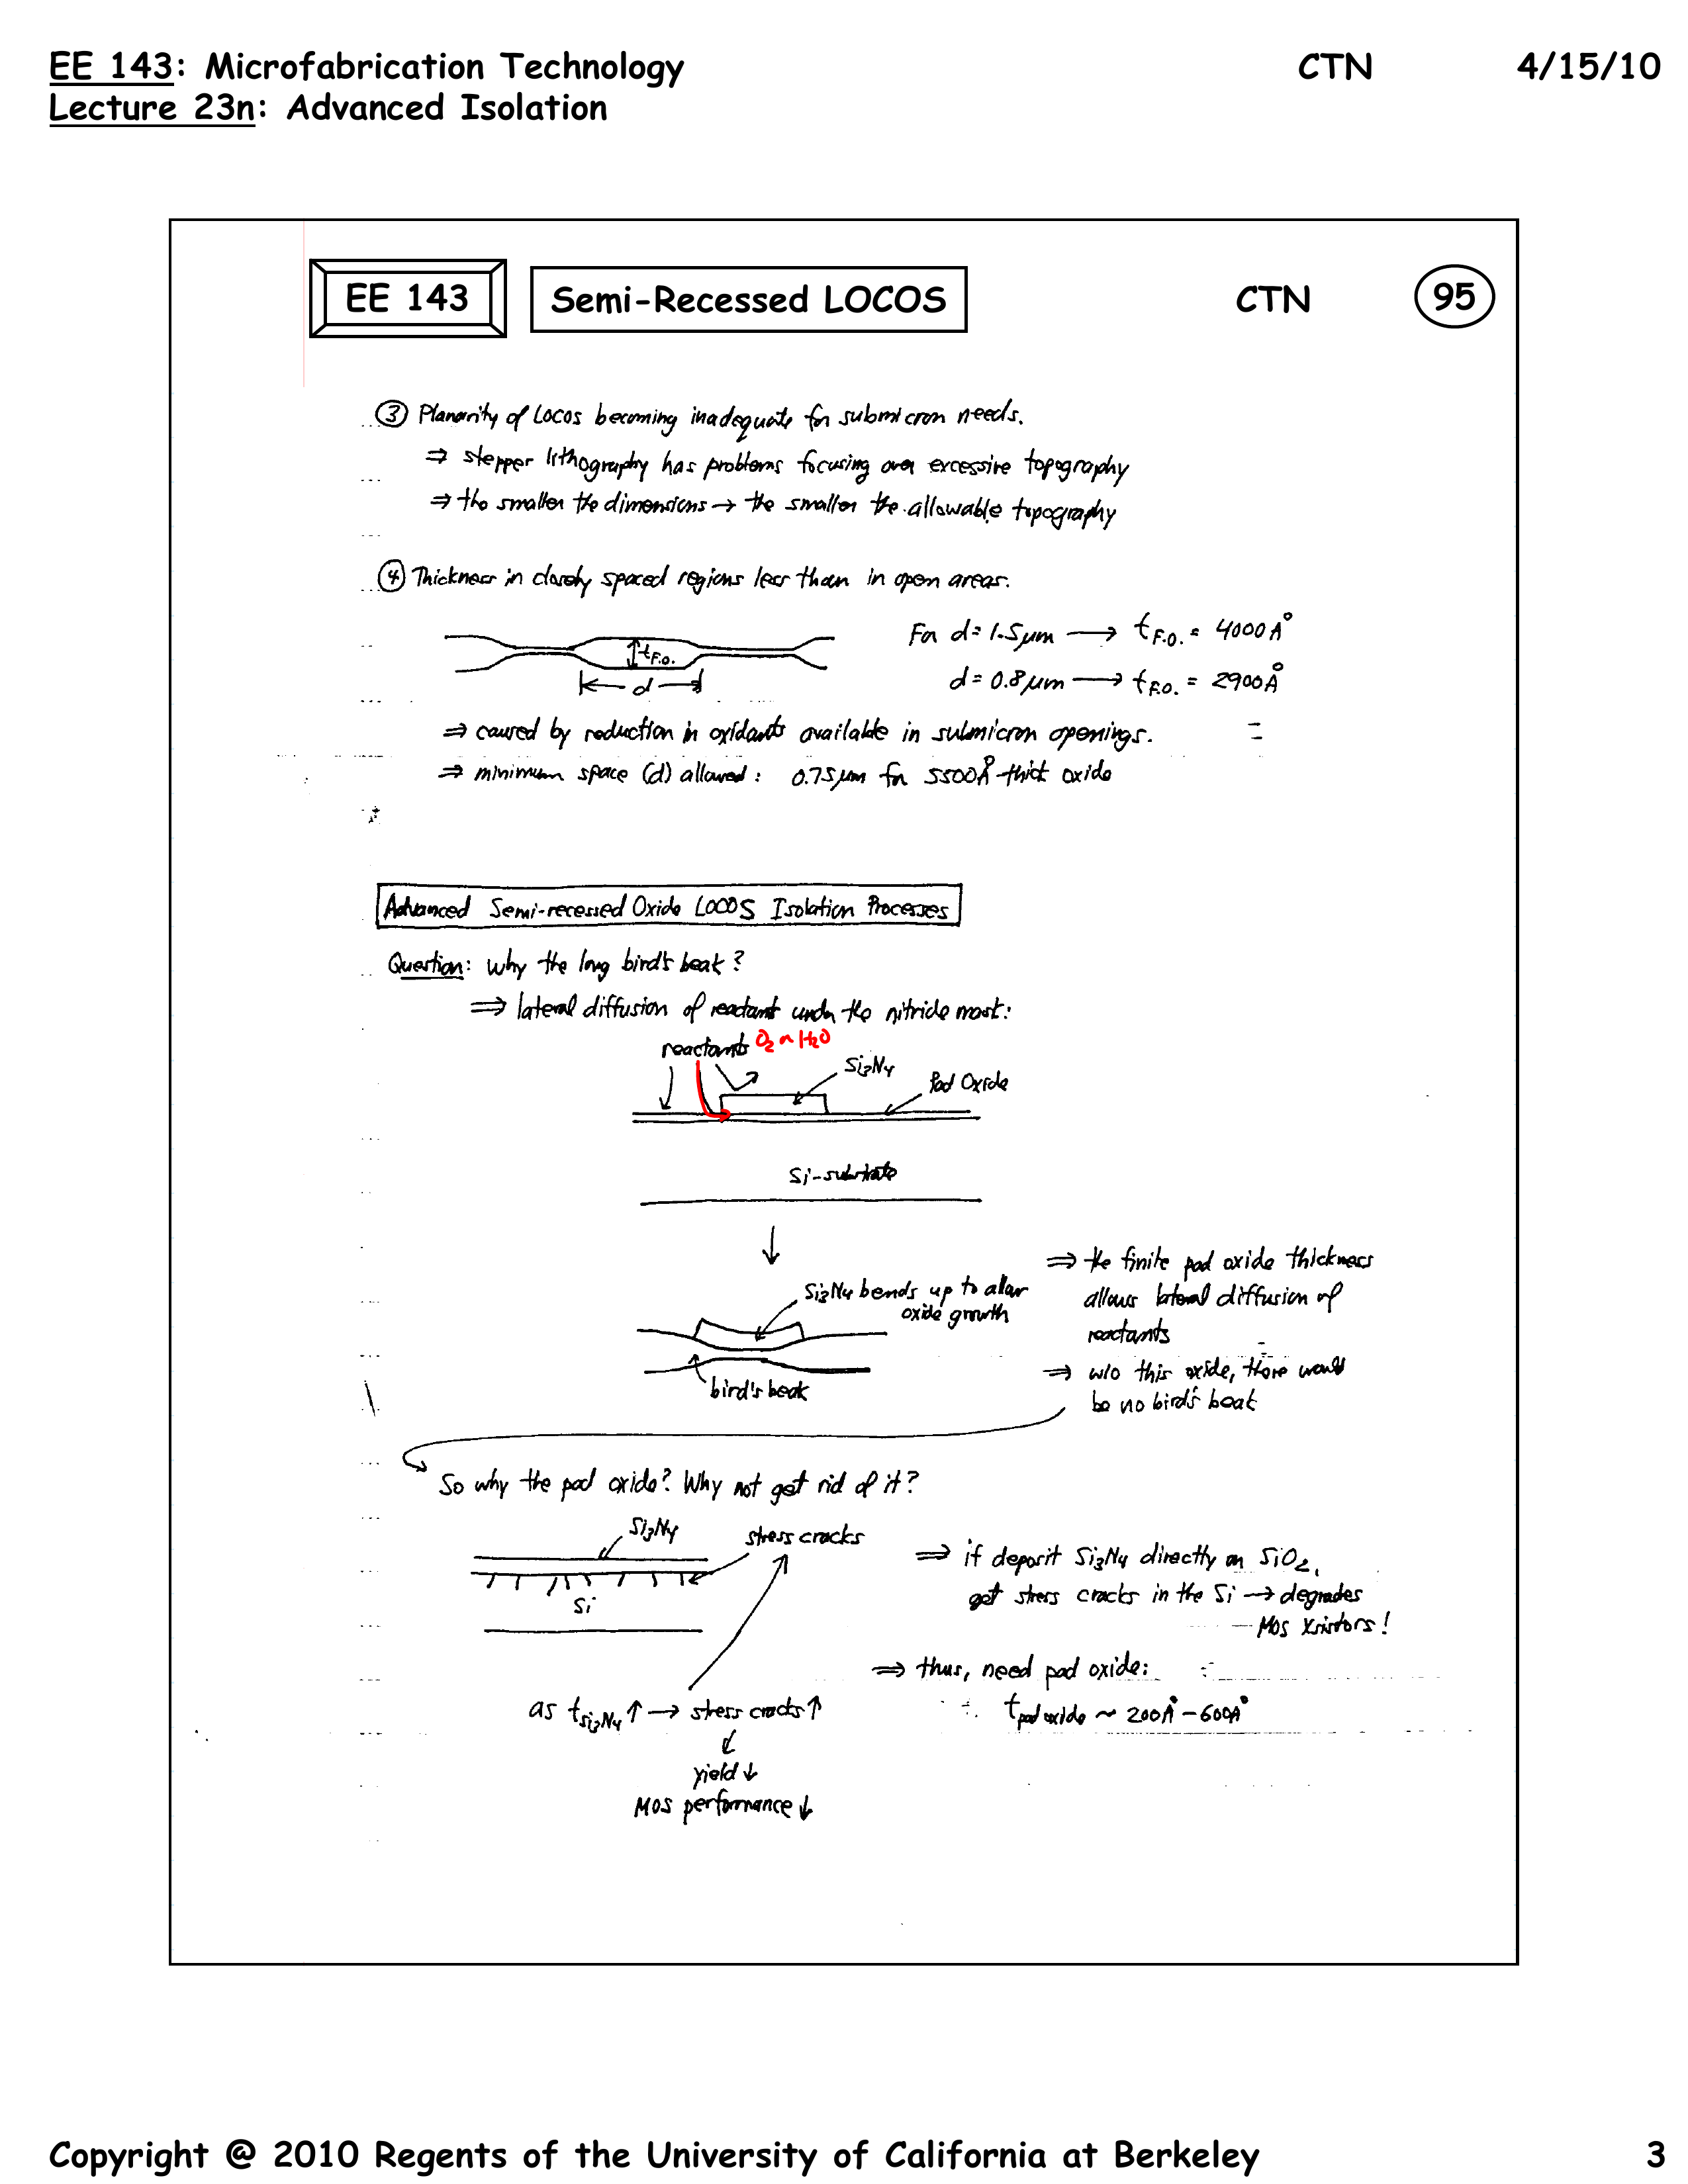 EE 143: Microfabrication Technology CTN 4/15/10
Lecture 23n: Advanced Isolation
EE 143 Semi-Recessed LOCOS CTN 95
③ Planarity of LOCOS becoming inadequate for submicron needs.
⇒ stepper lithography has problems focusing over excessive topography
⇒ the smaller the dimensions → the smaller the allowable topography
④ Thickness in closely spaced regions less than in open areas.
t_F.O.
d
For d = 1.5 μm → t_F.O. = 4000 Å
d = 0.8 μm → t_F.O. = 2900 Å
⇒ caused by reduction in oxidants available in submicron openings.
⇒ minimum space (d) allowed: 0.75 μm for 5500Å-thick oxide
Advanced Semi-recessed Oxide LOCOS Isolation Processes
Question: Why the long bird's beak?
⇒ lateral diffusion of reactant under the nitride mask:
reactants O₂ or H₂O
Si₃N₄
Pad Oxide
Si-substrate
↓
Si₃N₄ bends up to allow
oxide growth
bird's beak
⇒ the finite pad oxide thickness
allows lateral diffusion of
reactants
⇒ w/o this oxide, there would
be no bird's beak
So why the pad oxide? Why not get rid of it?
Si₃N₄
stress cracks
Si
⇒ if deposit Si₃N₄ directly on SiO₂,
get stress cracks in the Si → degrades
MOS Xsistors!
⇒ thus, need pad oxide:
t_pad oxide ~ 200Å – 600Å
as t_Si₃N₄ ↑ → stress cracks ↑
yield ↓
MOS performance ↓
Copyright @ 2010 Regents of the University of California at Berkeley 3